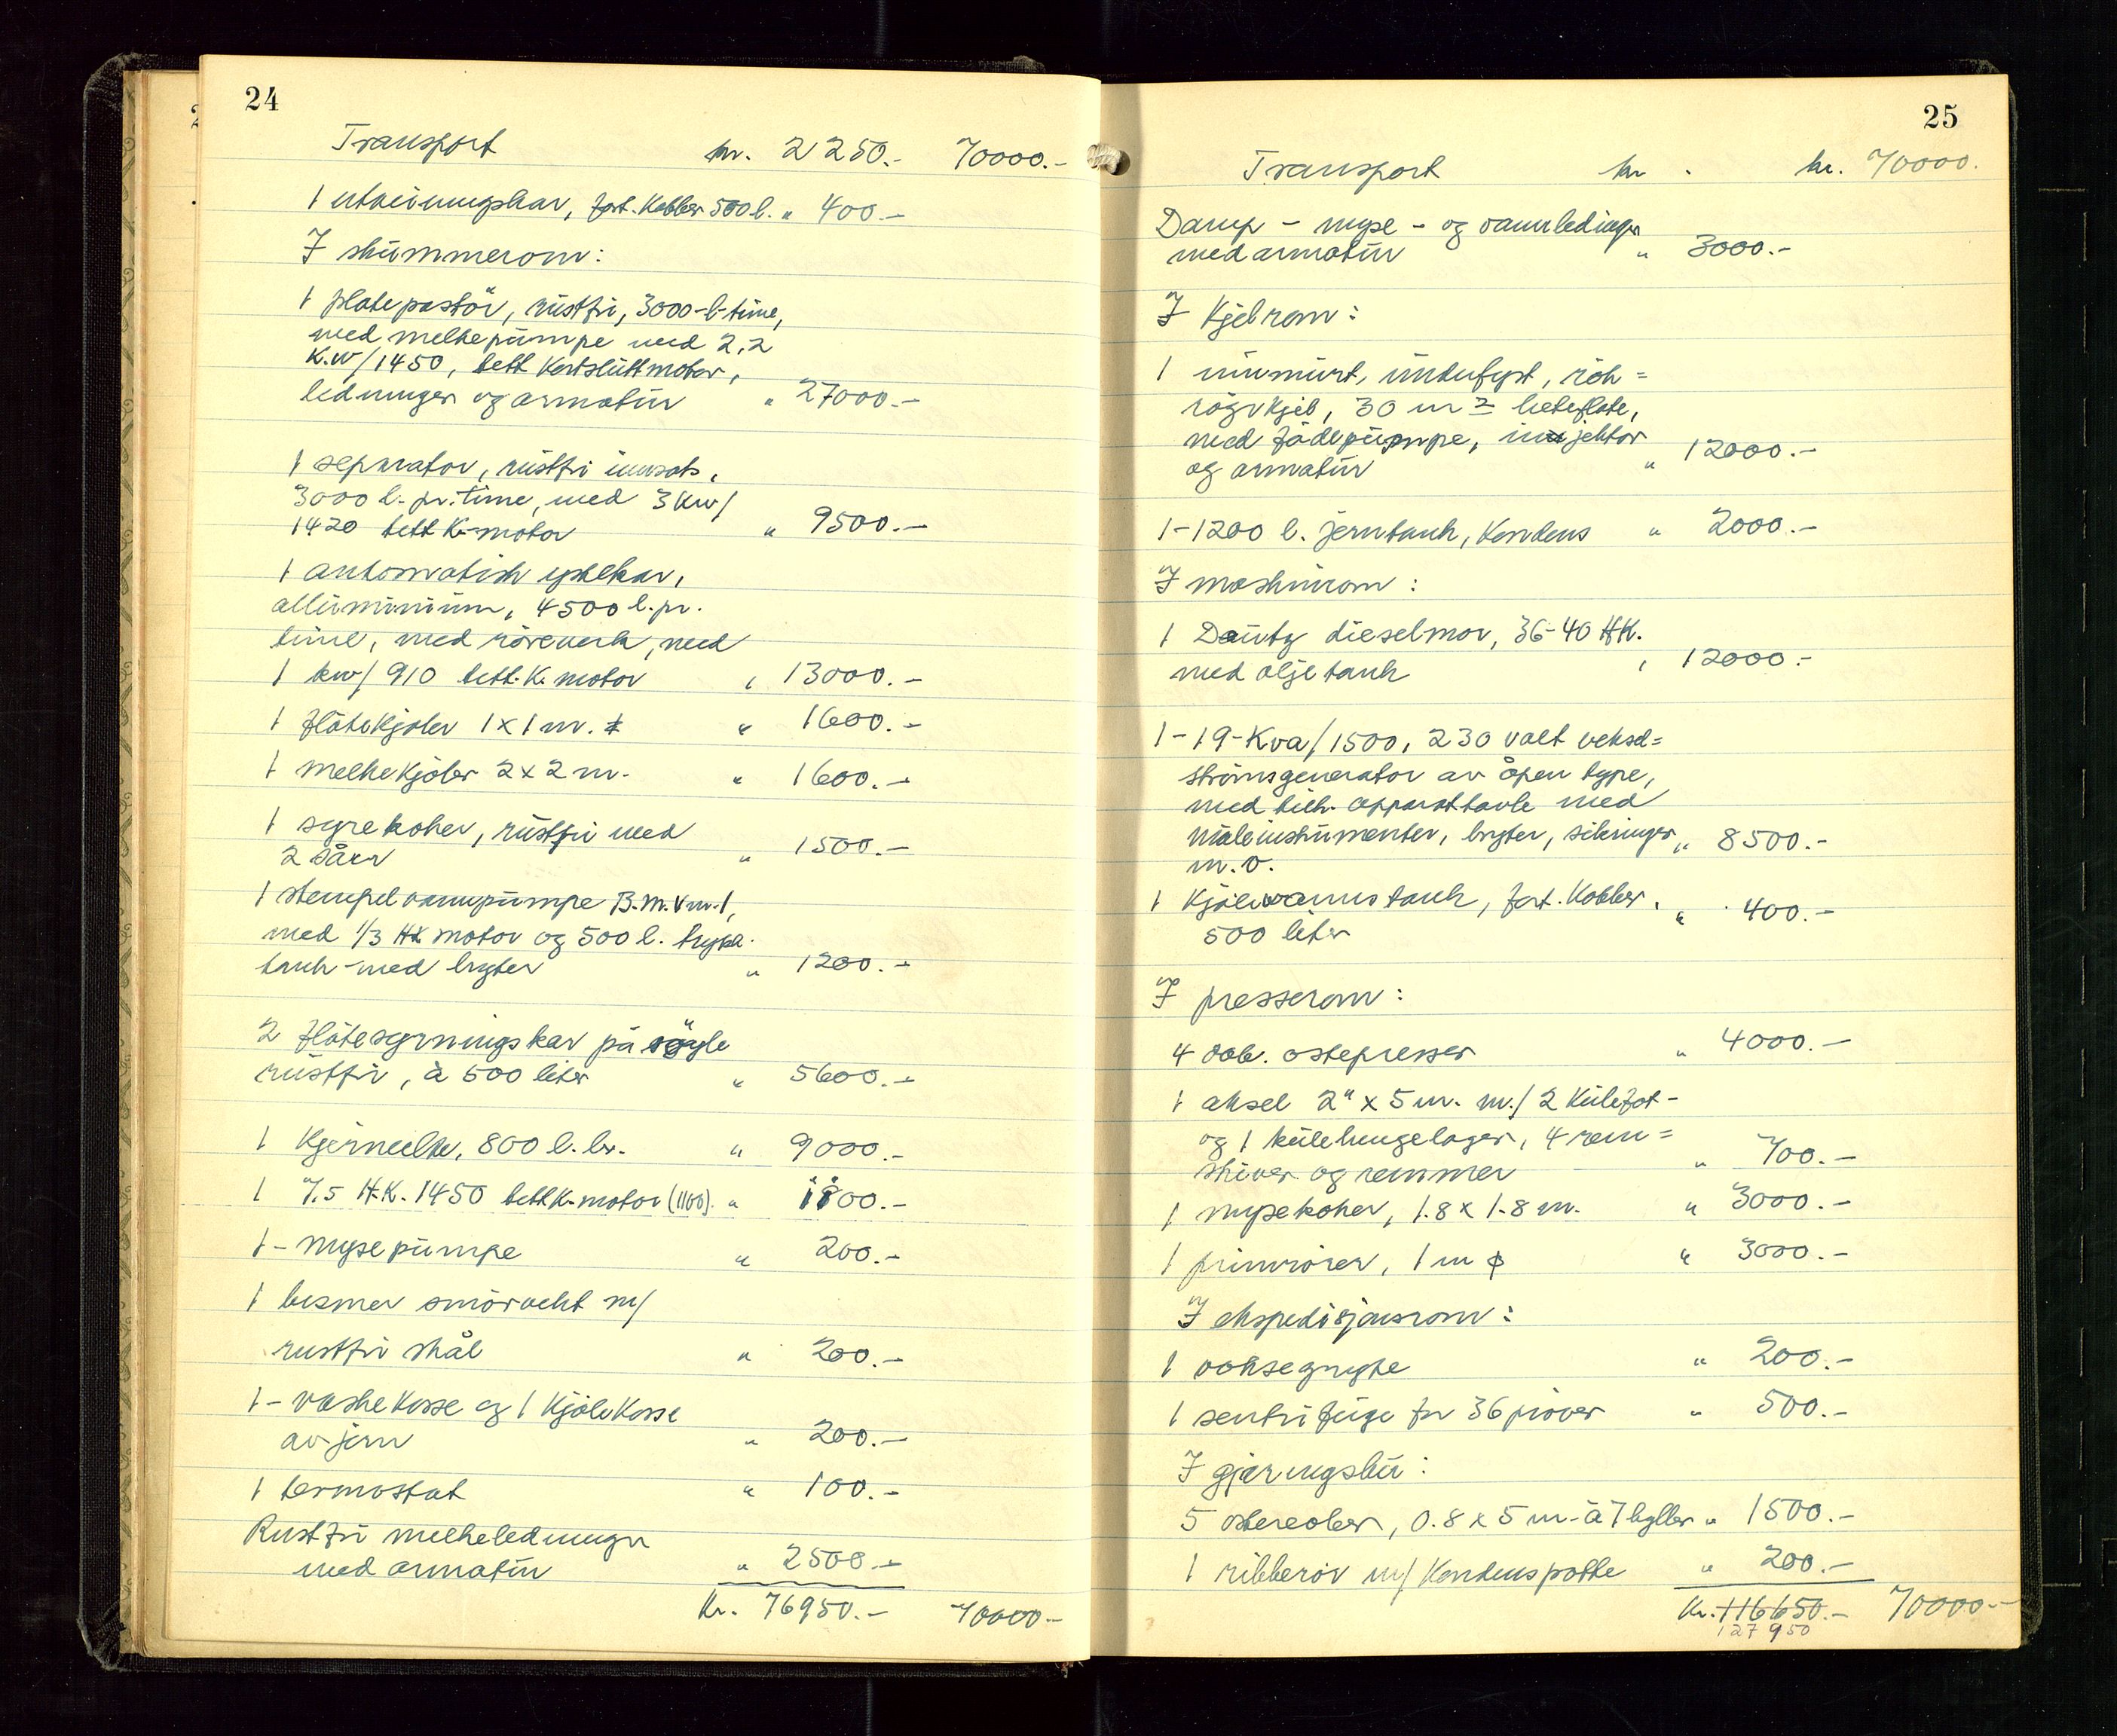 24
Transport kr. 2250.- 70000.-
1 utveiningskar, fort. Kobber 500 l. " 400.-
I skummerom:
1 platepastör, rustfri, 3000-l-time,
med melkepumpe med 2,2
K.W/1450, tett kortsluttmotor,
ledninger og armatur " 27000.-
1 separator, rustfri innsats,
3000 l. pr. time, med 3 kw/
1420 tett K-motor " 9500.-
1 automatisk ystekar,
alluminium, 4500 l. pr.
time, med röreverk, med
1 kw/ 910 tett. K. motor " 13000.-
1 flötekjöler 1x1 m. " 1600.-
1 melkekjöler 2x2 m. " 1600.-
1 syrekoker, rustfri med
2 såer " 1500.-
1 stempelvannpumpe B.M.V.m.1,
med 1/3 HK motor og 500 l. trykk
tank med bryter " 1200.-
2 flötesyrningskar på söyle
rustfri, à 500 liter " 5600.-
1 Kjernelke, 800 l. br. " 9000.-
1 7.5 H.K. 1450 tett K-motor (1100). " 1800.-
1 - mysepumpe " 200.-
1 bismer smörvekt m/
rustfri skål " 200.-
1 - vaskekasse og 1 Kjölekasse
av jern " 200.-
1 termostat " 100.-
Rustfri melkeledninger
med armatur " 2500.-
Kr. 76950.- 70000.-
25
Transport kr . kr. 70000.
Damp - myse - og vannledinger
med armatur " 3000.-
I Kjelrom:
1 innmurt, underfyrt, rök=
rörkjel, 30 m2 heteflate,
med födepumpe, injektor
og armatur " 12000.-
1-1200 l. jerntank, Kondens " 2000.-
I maskinrom:
1 Deutz dieselmor, 36-40 HK.
med oljetank " 12000.-
1-19-Kva/1500, 230 volt veksel=
strömsgenerator av åpen type,
med tilh. apparattavle med
måleinstrumenter, bryter, sikringer " 8500.-
m.v.
1 Kjölevannstank, fort. Kobber, " 400.-
500 liter
I presserom:
4 dob. ostepresser " 4000.-
1 aksel 2" x 5 m. m/ 2 Kulefot-
og 1 kulehengelager, 4 rem=
skiver og remmer " 700.-
1 mysekoker, 1.8 x 1.8 m. " 3000.-
1 primrörer, 1 m ϕ " 3000.-
I ekspedisjonsrom:
1 voksegryte " 200.-
1 sentrifuge for 36 pröver " 500.-
I gjæringsbu:
5 ostereoler, 0.8 x 5 m. à 7 hyller " 1500.-
1 ribberör m/ Kondenspotte " 200.-
Kr. 116650.- 70000.-
127950